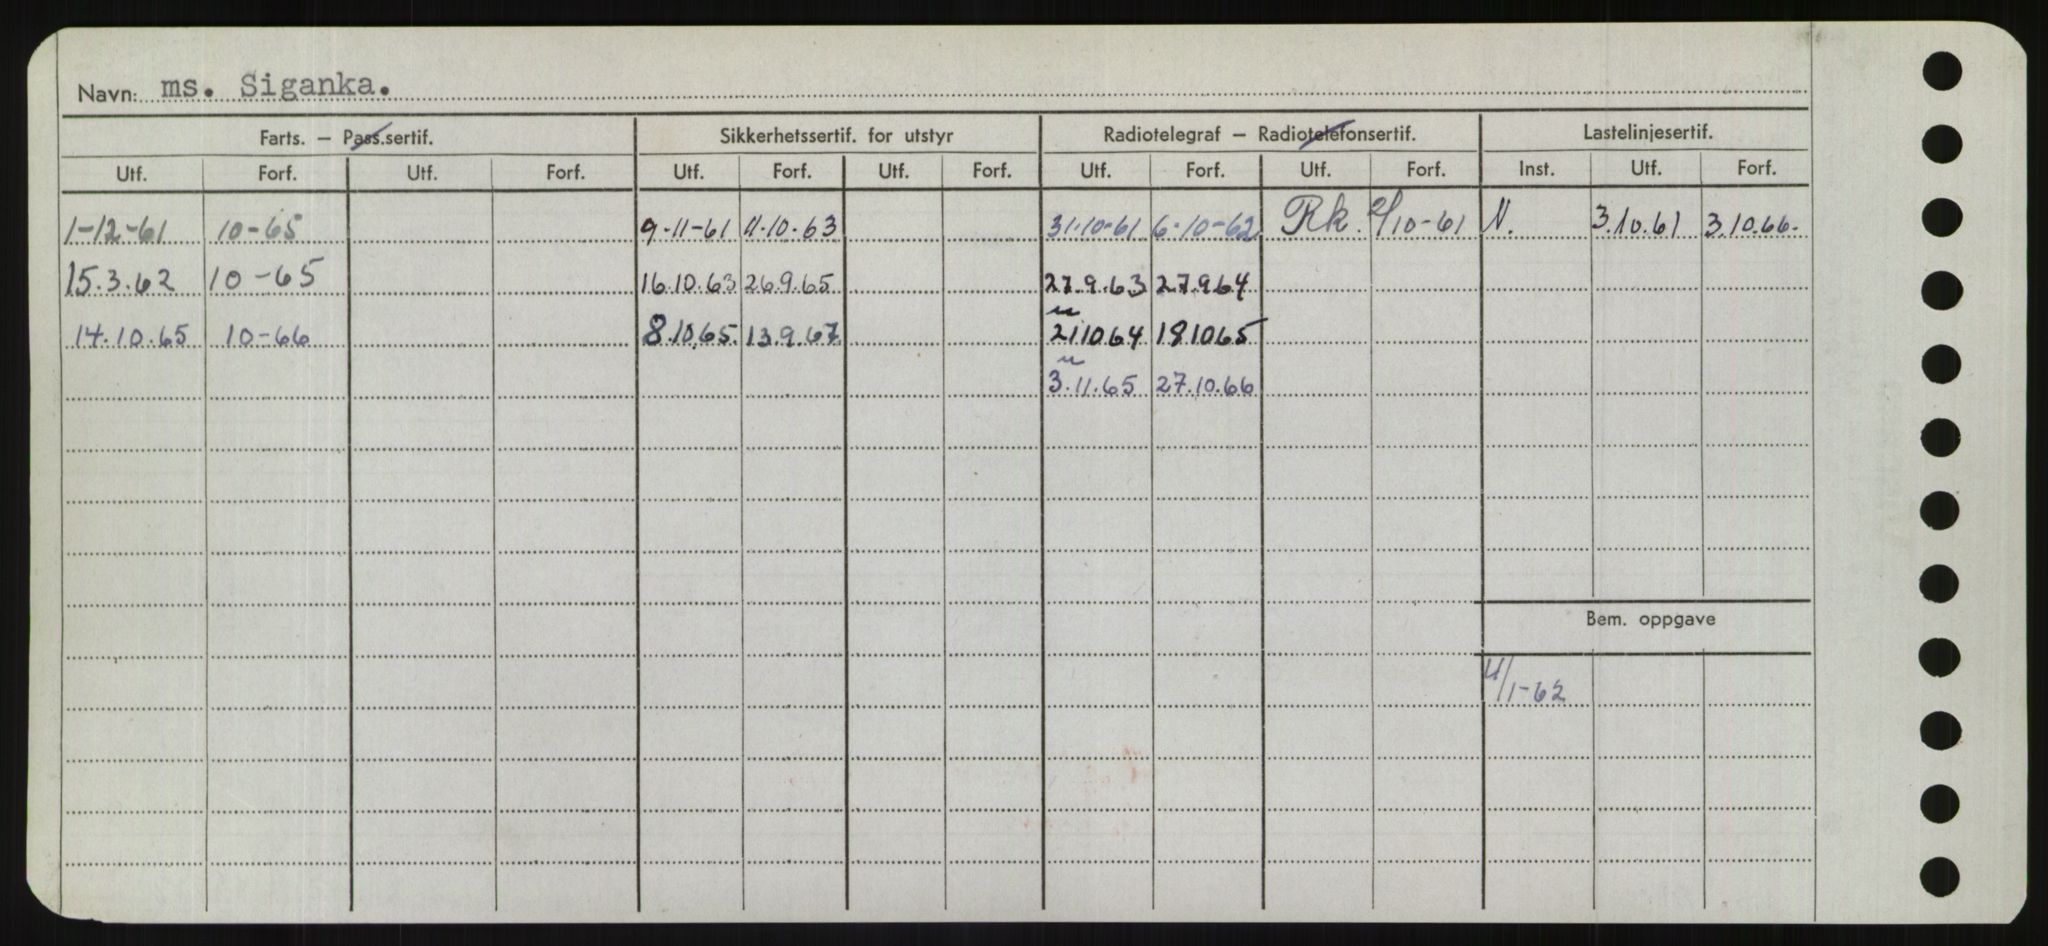 Navn: ms. Siganka.
Farts. — Pass.sertif. Sikkerhetssertif. for utstyr Radiotelegraf — Radiotelefonsertif. Lastelinjesertif.
Utf. Forf. Utf. Forf. Utf. Forf. Utf. Forf. Utf. Forf. Utf. Forf. Inst. Utf. Forf.
1-12-61 10-65 9-11-61 11.10.63 31.10-61 6-10-62 Rk. /10-61 N. 3.10.61 3.10.66.
15.3.62 10-65 16.10.63 26.9.65 27.9.63 27.9.64
14.10.65 10-66 8.10.65. 13.9.67 21.10.64 18.10.65
3.11.65 27.10.66
Bem. oppgave
/1-62